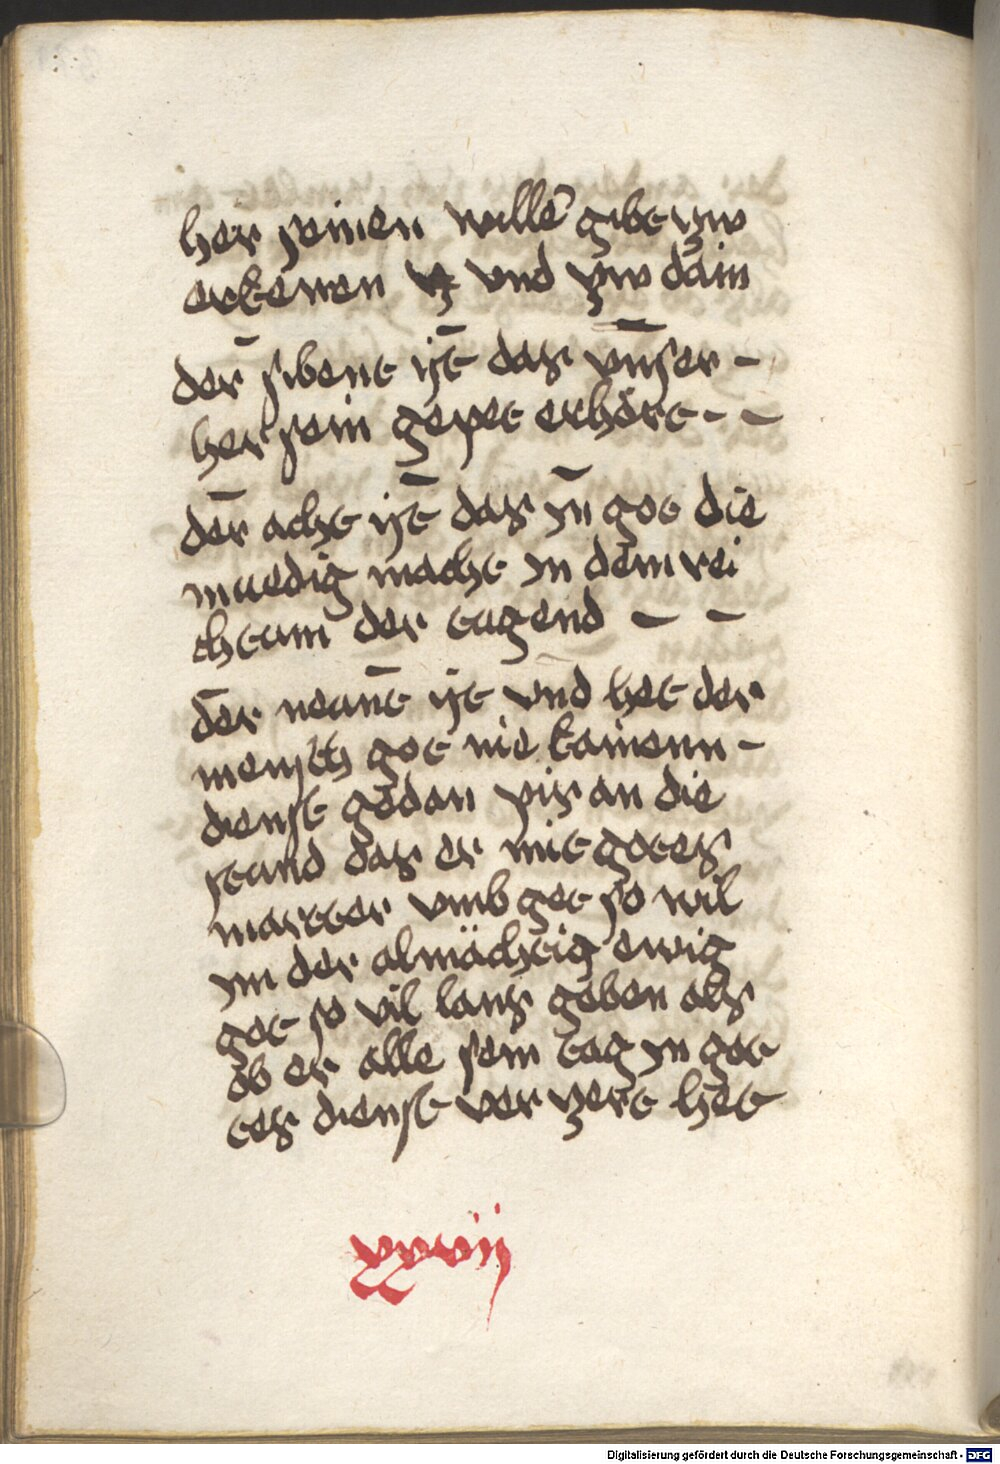 her seinen willen̄ gibt zw
erkenen vnd zw dain
der̄ sibent ist̄ das vn̄ser -
her sein gepet erhört - -
der̄ acht ist̄ das yn̄ got die
muedig macht yn dem rei
chtum der tugend - -
der̄ neunt̄ ist vnd het der
mensch got nie kainenn -
dienst gedan pis an die
stund das er mit gotes
martter vmb get so wil
ym der almächtig ewig
got so vil lons geben als
ob er alle sein tag yn got
tes dienst ver zert het
xxvij
Digitalisierung gefördert durch die Deutsche Forschungsgemeinschaft - DFG